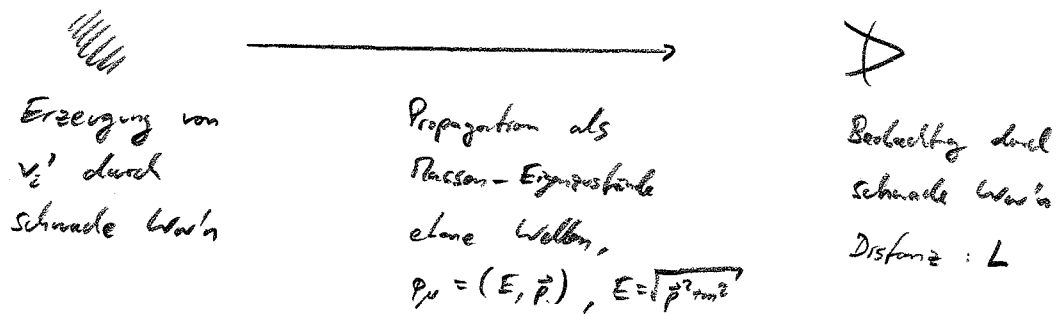 Erzeugung von
ν_i' durch
schwache WW'n
Propagation als
Massen-Eigenzustände
ebene Wellen,
p_μ = (E, p⃗), E = √(p⃗² + m²)
Beobachtung durch
schwache WW'n
Distanz : L